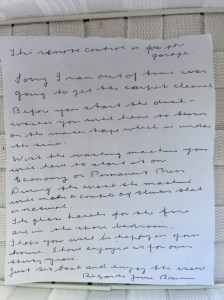 The remote control is for the
garage.
Sorry I ran out of time was
going to get the carpet cleaned
Before you start the dish-
washer you will have to turn
on the water tap which is under
the sink.
With the washing machine you
will have to start it on
Economy or Permanent Press
During the the machine
will make a couple of that
is normal
The glass for the fire
are in the shore bedroom.
I hope you will be happy in your
home I have enjoyed it for over
years.
Just sit back and enjoy the view
Regards June